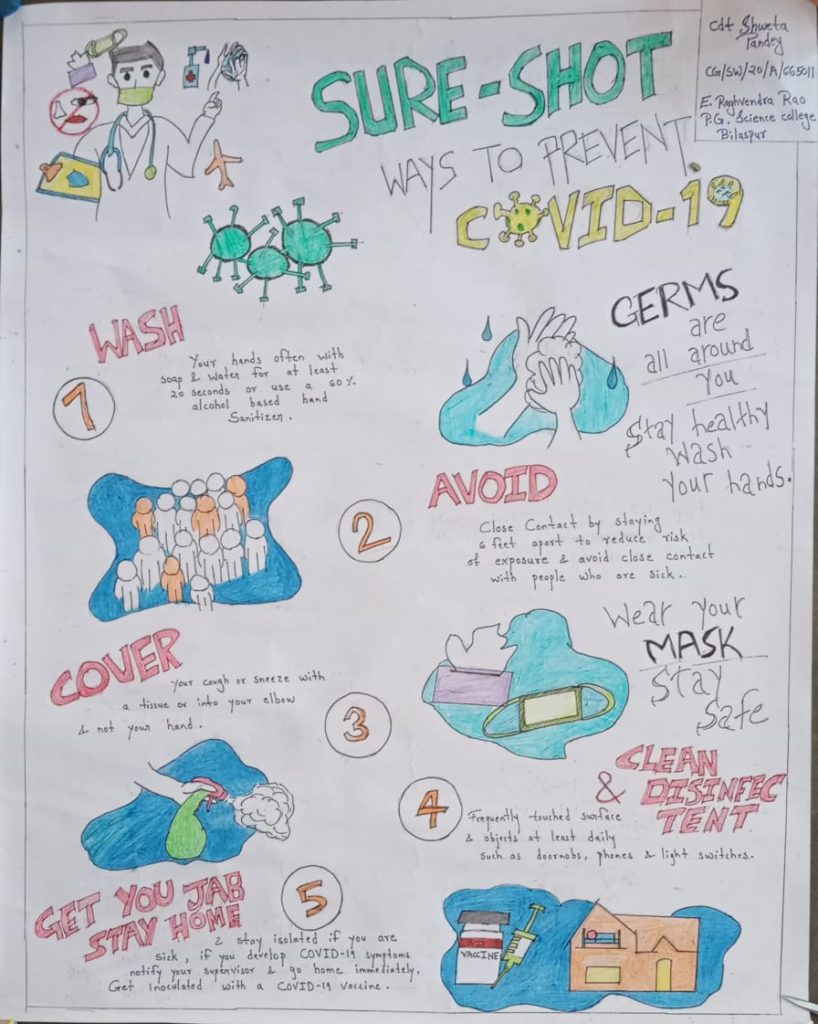 Cdt Shweta
Pandey
CG/SW/20/A/665011
E. Raghvendra Rao
P.G. Science college
Bilaspur
SURE-SHOT
WAYS TO PREVENT
COVID-19
WASH
1
Your hands often with
soap & water for at least
20 seconds or use a 60%
alcohol based hand
Sanitizer.
GERMS
are
all around
you
Stay healthy
Wash
your hands.
AVOID
2
Close Contact by staying
6 feet apart to reduce risk
of exposure & avoid close contact
with people who are sick.
COVER
your cough or sneeze with
a tissue or into your elbow
& not your hand.
3
Wear your
MASK
Stay
Safe
CLEAN
& DISINFEC
TENT
4
Frequently touched surface
& objects at least daily
such as doornobs, phones & light switches.
GET YOU JAB
STAY HOME
5
& stay isolated if you are
sick, if you develop COVID-19 symptoms
notify your supervisor & go home immediately,
Get inoculated with a COVID-19 vaccine.
VACCINE